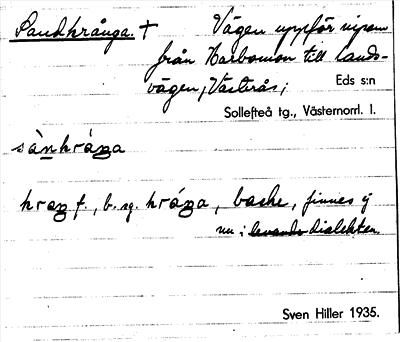 Sandkrånga. † Vägen uppför nipan
från Karbomon till lands-
vägen, Västerås; Eds s:n
Sollefteå tg., Västernorrl. l.
sànkráŋa
kraŋ f., b. sg. kráŋa, backe, finnes ej
nu i levande dialekten
Sven Hiller 1935.